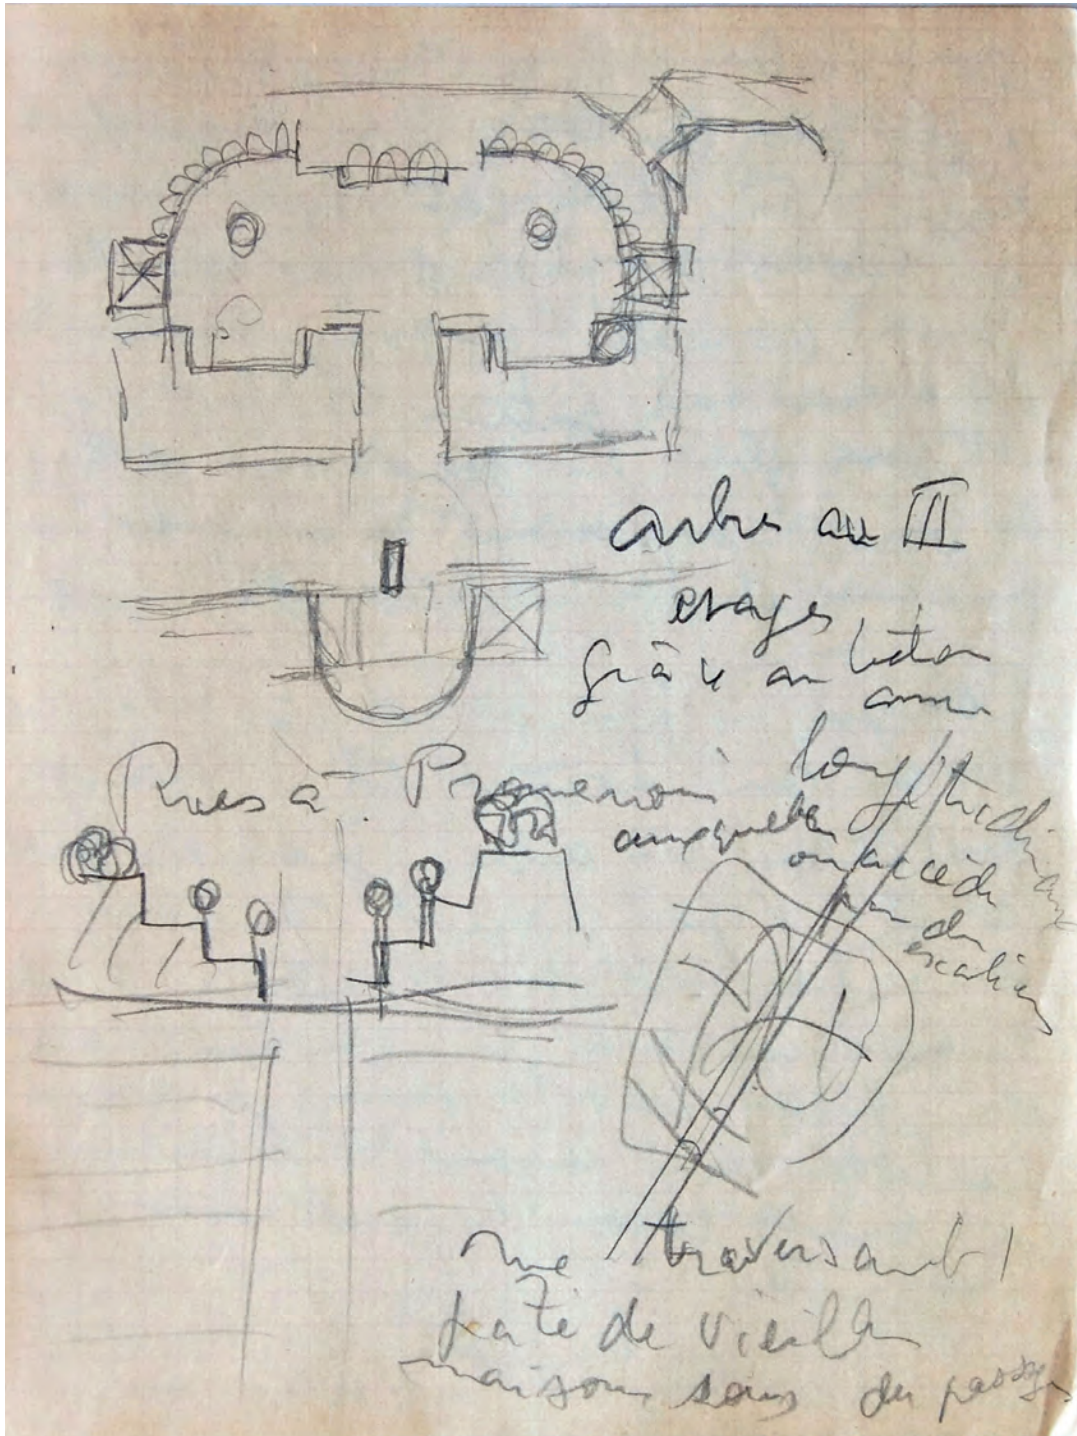 arbres au III
etages
grâce au béton
armé
Rues à Promenoirs longitudinaux
auxquels
on accède
par des
escaliers
rue traversant 1
paté de vieilles
maisons sous des passages